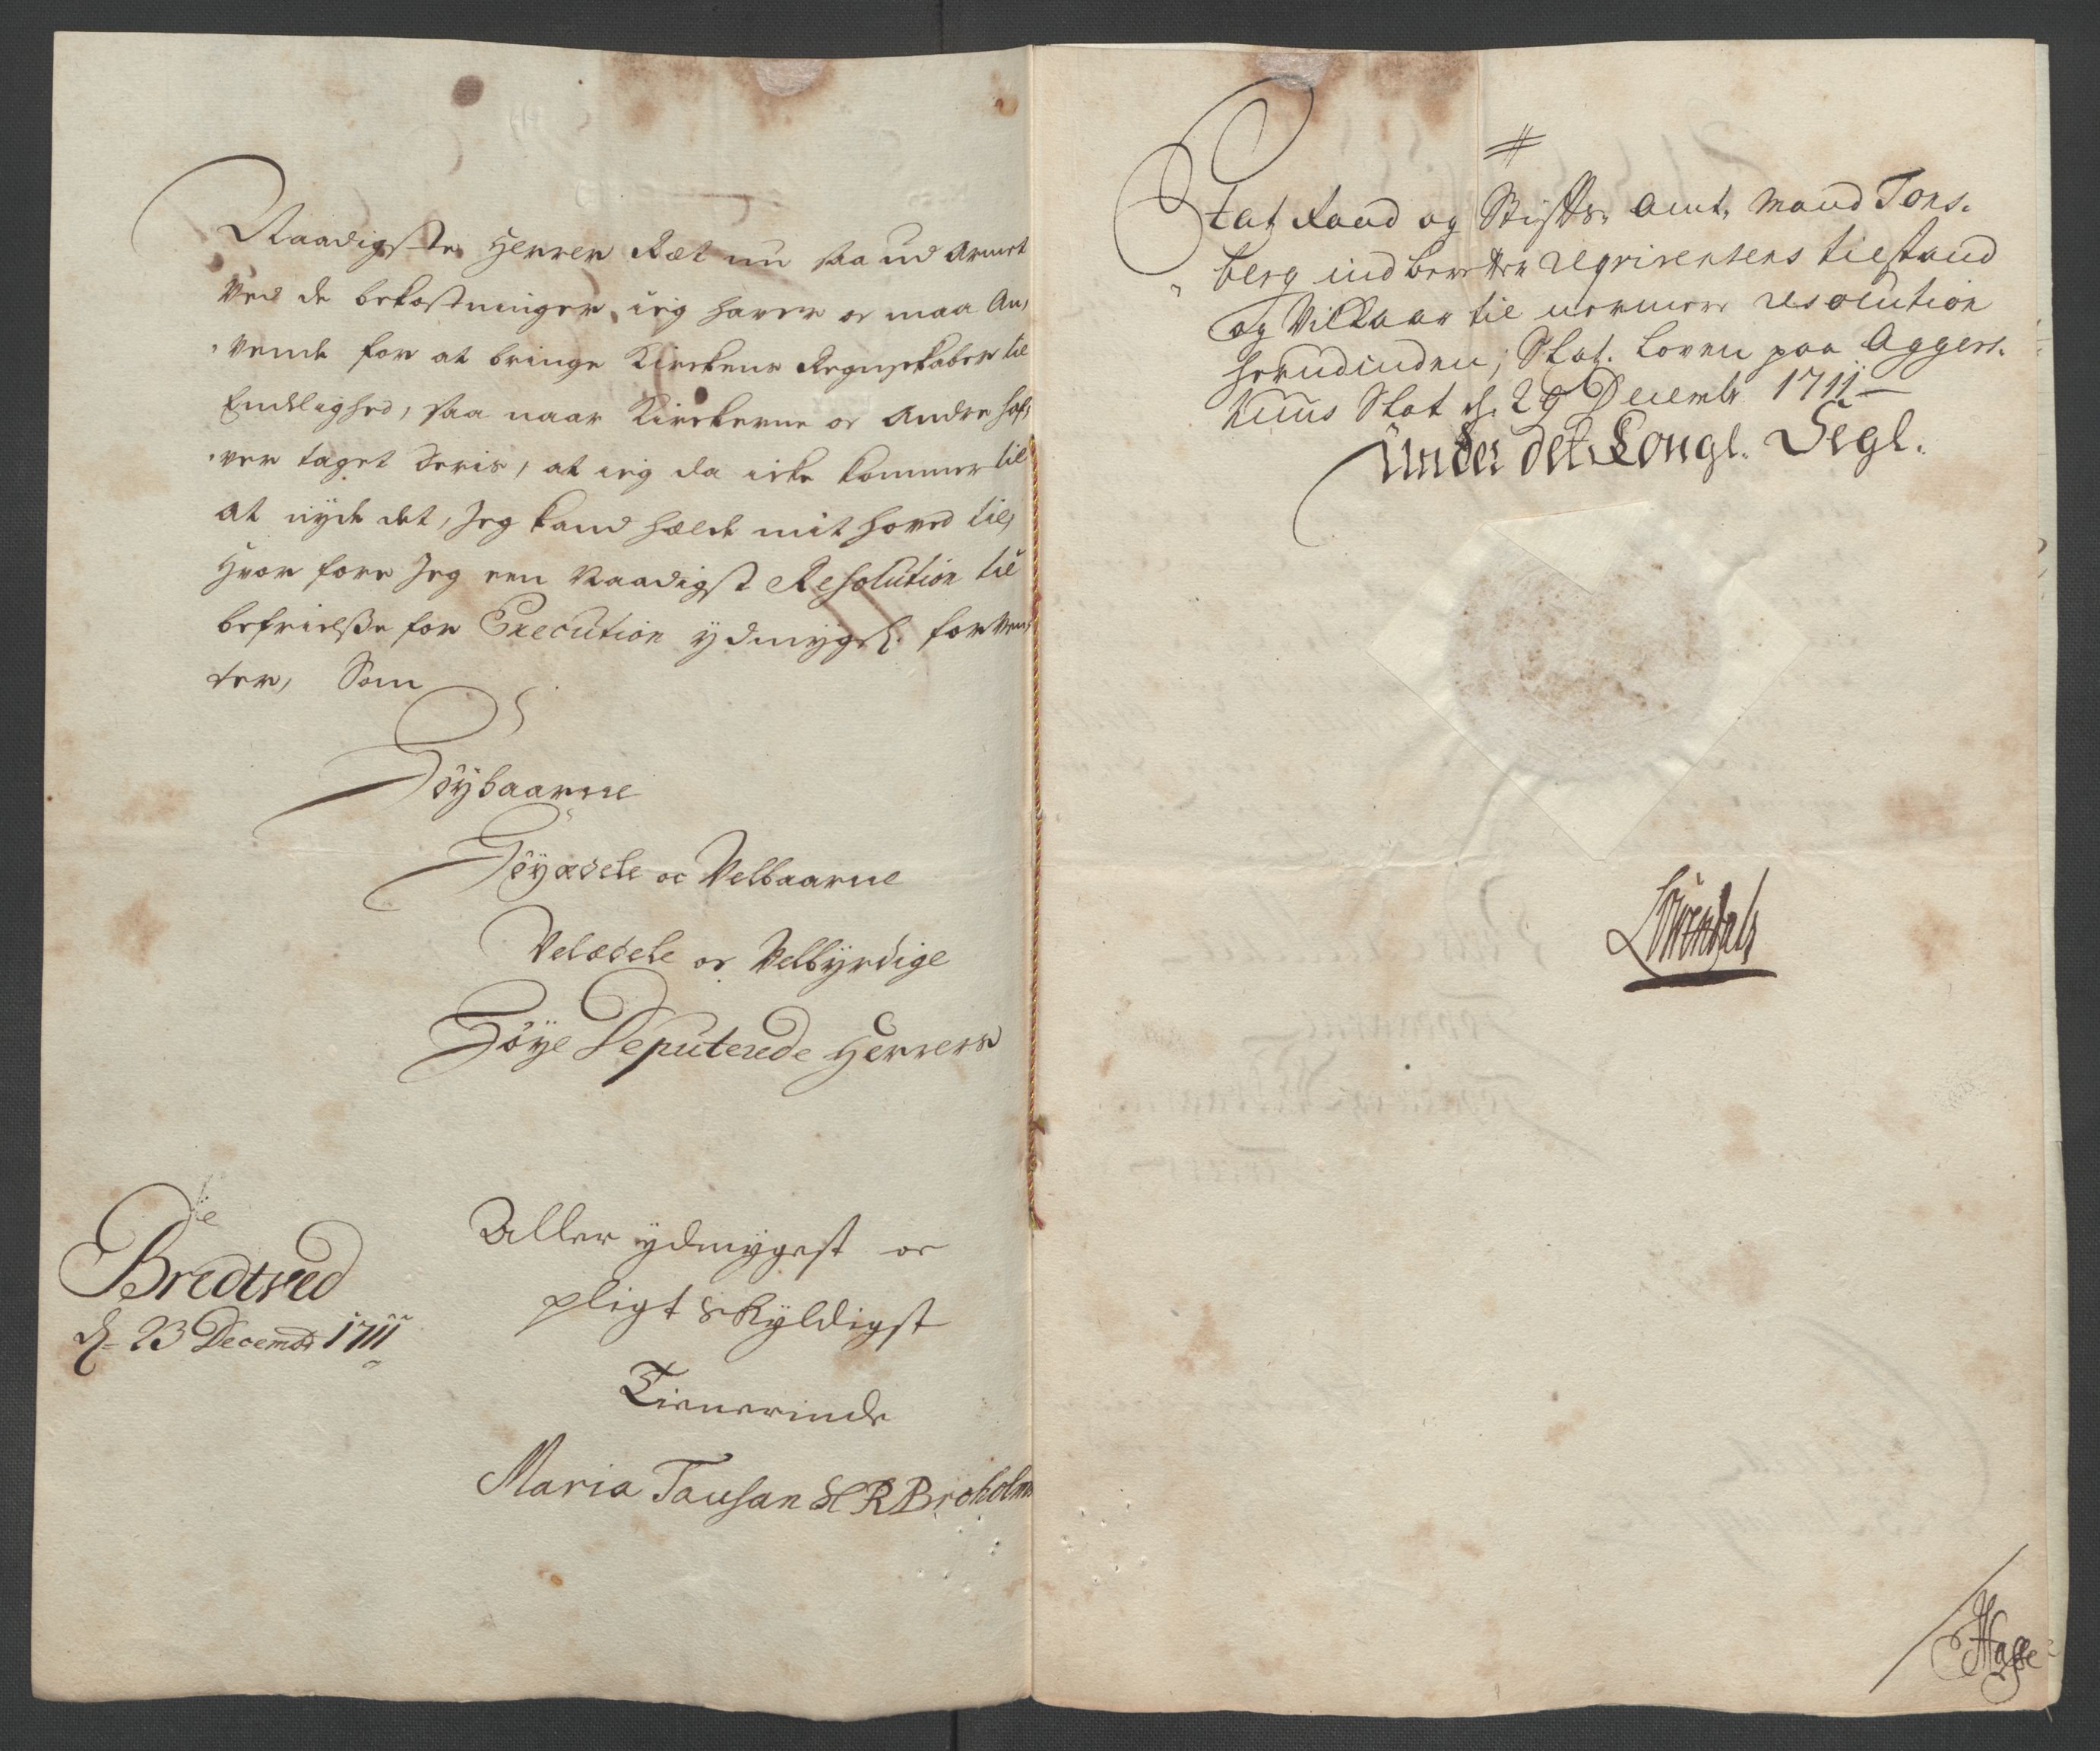 Naadigste Herrer Ræt nu saa ud armet
ved de bekostninger, ieg haver oc maa an,
,vende for at bringe Kirckens Regnskaber til
Endelighed, saa naar Kirckerne oc andre haf,
,ver taget deris, at ieg da icke kommer til
at nyde det, Jeg kand hælde mit hoved til,
Hvor fore Jeg een Naadigst Resolution til
befrielsse for Execution ydmygel. forven,
ter, Som
Høybaarne
Høyædele oc Velbaarne
Velædele oc Velbyrdige
Høye Deputerede Herrers
Bredtved
d. 23 Decembr 1711
Aller ydmygest oc
pligt skyldigst
Tienerinde
Maria Tausan Sl R Broholms
Etat Raad og Stiffts, Amt, Mand Tons,
berg indberetter
tilstand
og Vilkaar til nermere resolution
herudinden, Slot. Loven paa Aggers,
huus Slot d. 29 Decembr 1711
Under det Kongl. Segl.
Löwendals